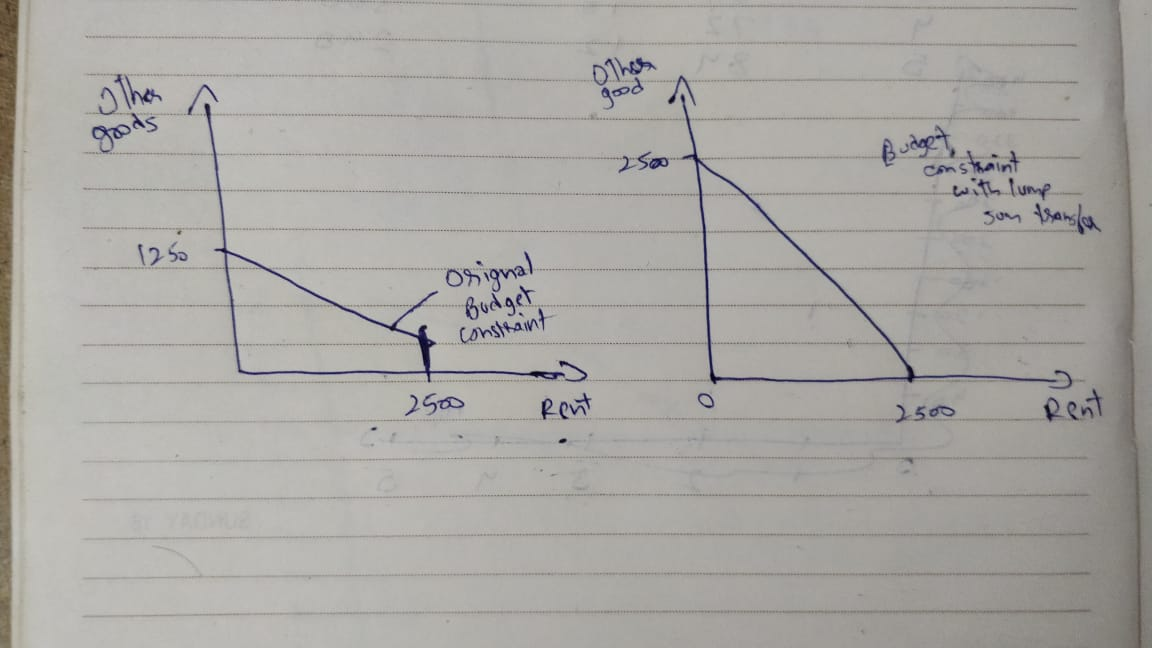 Other
goods
1250
Orignal
Budget
constraint
2500
Rent
Other
good
2500
Budget
constraint
with lump
sum transfer
0
2500
Rent